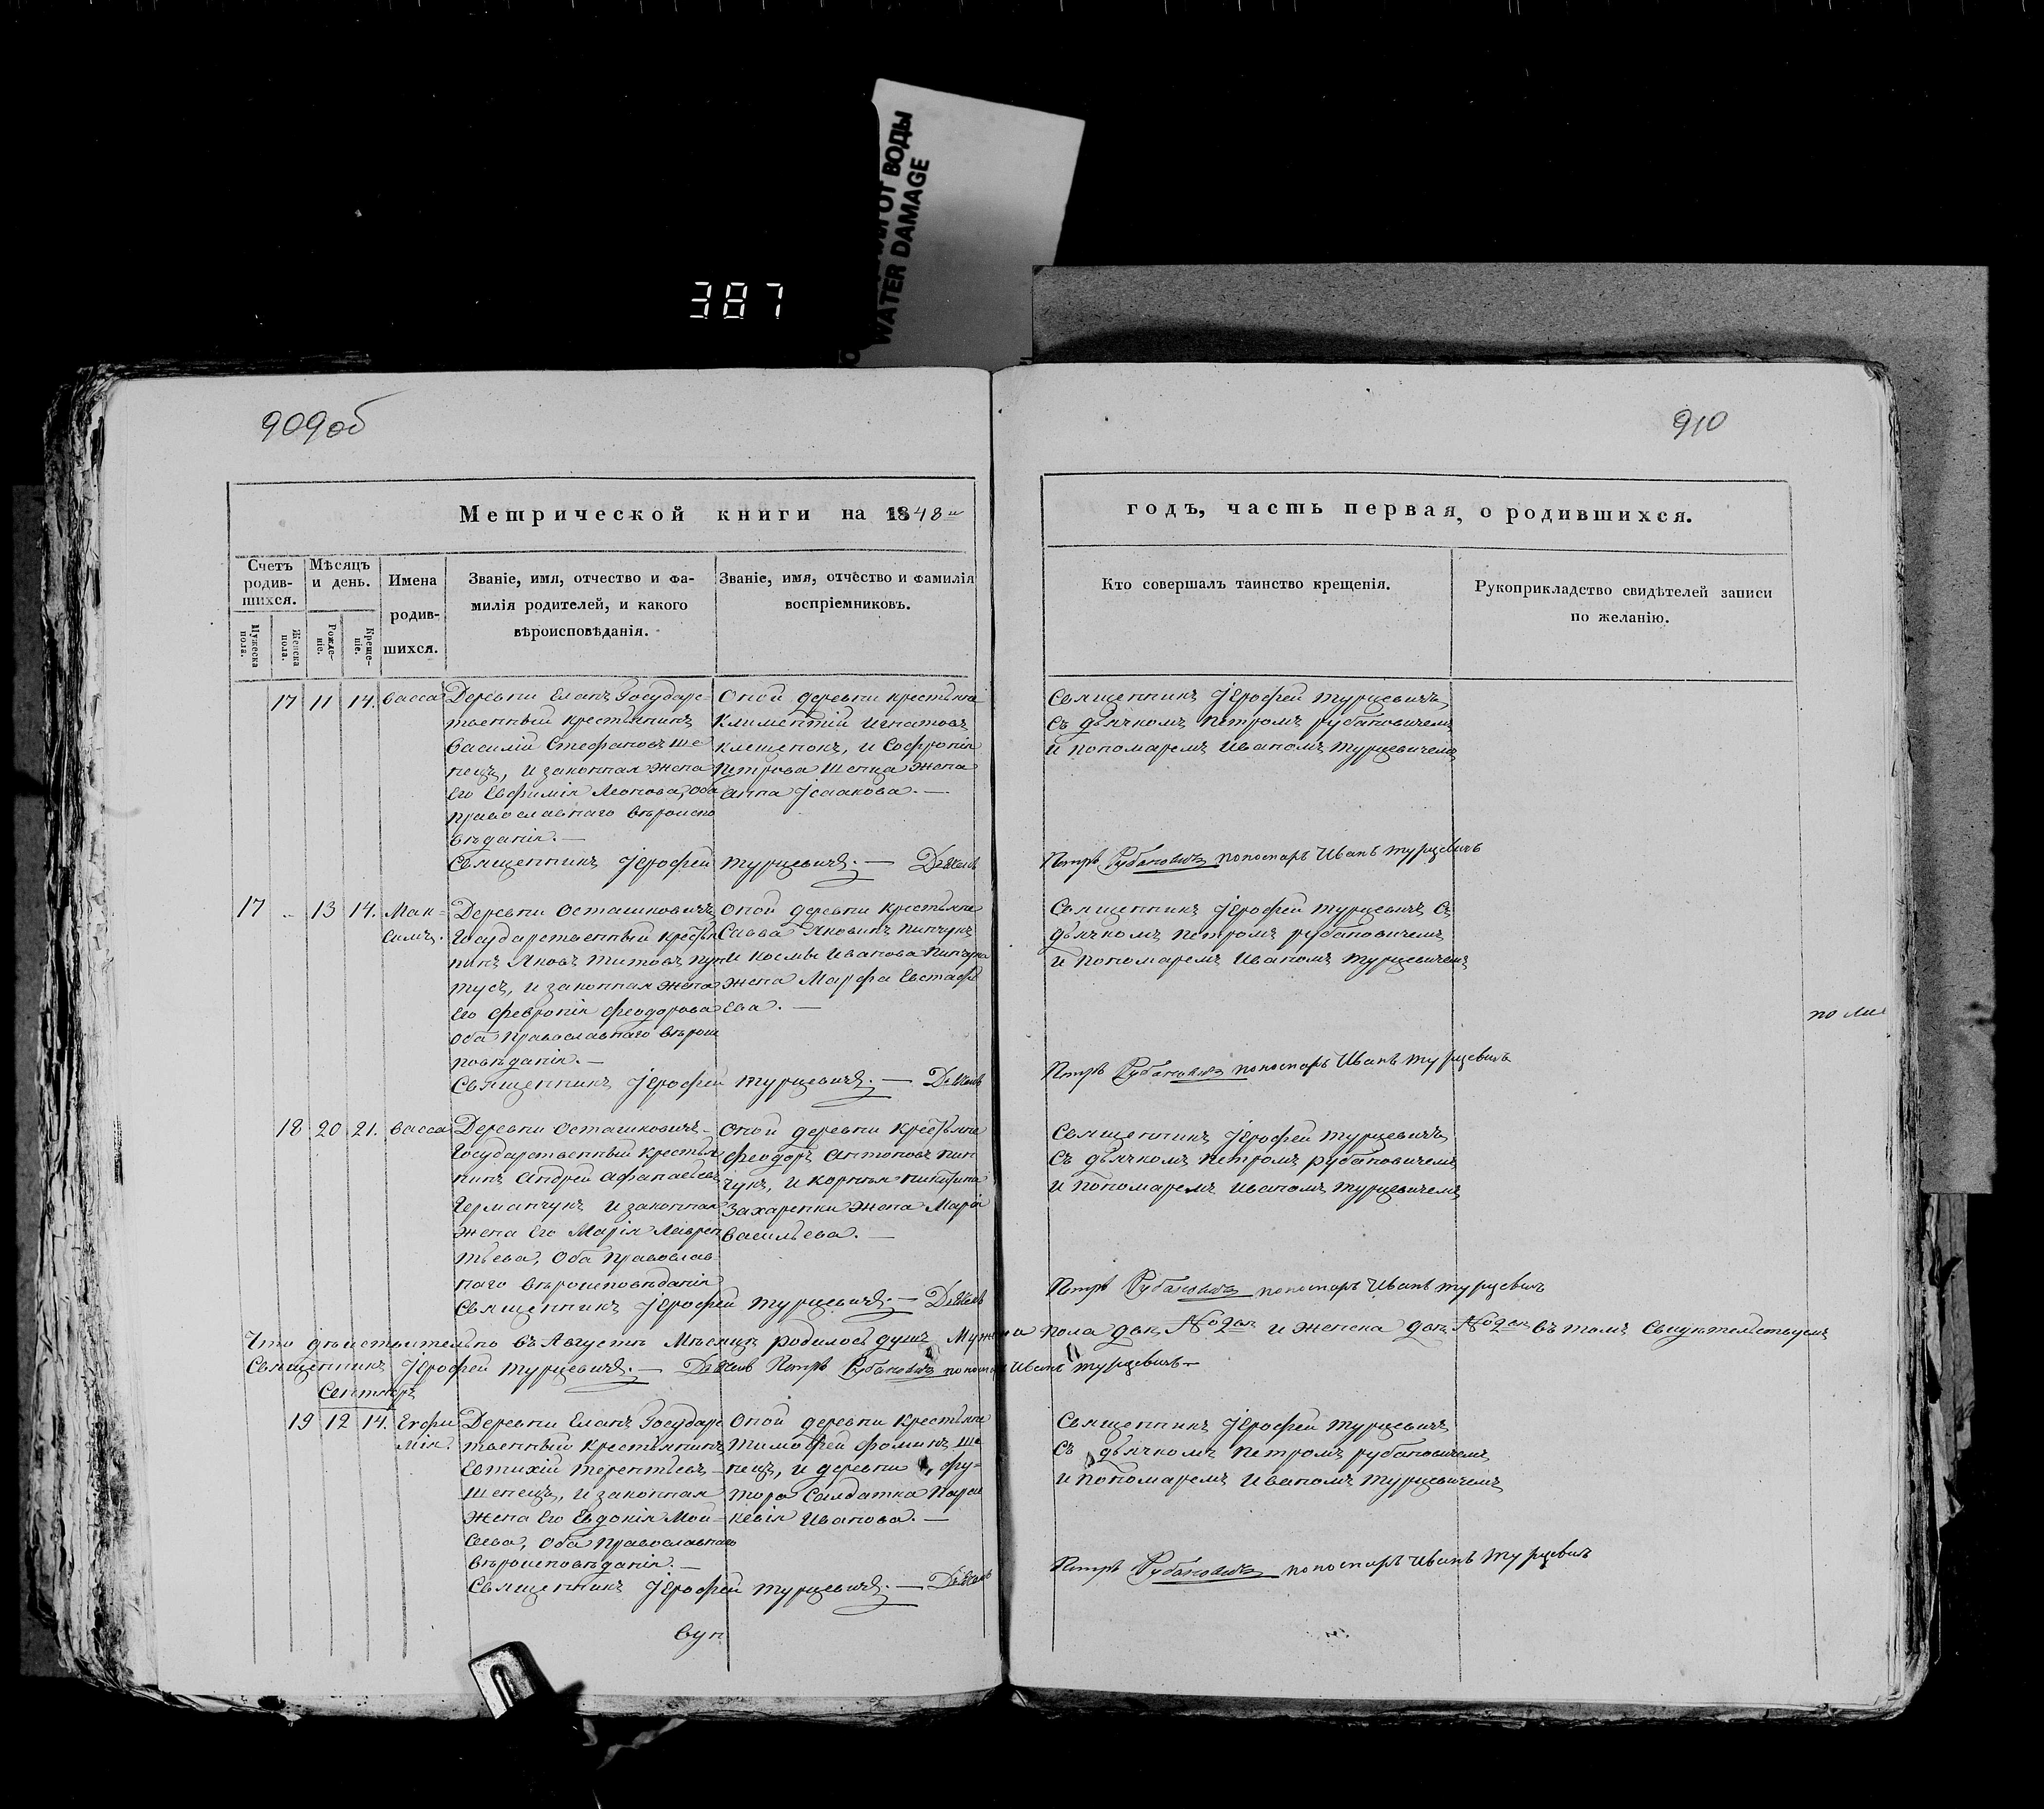 ВОДЫ
WATER DAMAGE
387
909 об
910
Метрической книги на 1848й
годъ, часть первая, о родившихся.
Счетъ родив-шихся.
Мужеска пола.
Женска пола.
Мѣсяцъ и день.
Рожде-ніе.
Креще-ніе.
Имена родив-шихся.
Званіе, имя, отчество и фа-
милія родителей, и какого
вѣроисповѣданія.
Званіе, имя, отчество и фамилія
воспріемниковъ.
Кто совершалъ таинство крещенія.
Рукоприкладство свидѣтелей записи
по желанію.
17 11 14. васса
Деревни Еланъ Государс-
твенный крестьянинъ
василій Стефановъ Ше
пецъ, и законная жена
Его Евфимія Леонова, оба
православнаго вѣроиспо
вѣданія.—
Оной деревни крестьяне
Климентій Игнатовъ
клещенокъ, и Софронія
Петрова Шепца жена
анна Јсаакова.—
Священникъ Јерофей турцевичъ
Съ дьячкомъ петромъ рубановичемъ
и пономаремъ Иваномъ турцевичемъ
Священникъ Јерофей турцевичъ.—
Петръ Рубановичъ пономарь Иванъ турцевичъ
17 .. 13 14. Мак-
симъ.
Деревни Осташковичъ
Государственный крестья
нинъ Яковъ Титовъ
тусъ, и законная жена
Его февронія феодорова
Оба православнаго вѣрои
повѣданія.—
Оной деревни крестьяне
Савва Яковинъ Пинчукъ
И Космы Иванова Пинчука
жена Марфа Евстафі
Ева.—
Священникъ Јерофей турцевичъ Съ
дьячкомъ петромъ рубановичемъ
и пономаремъ Иваномъ турцевичемъ
по ли
Священникъ Јерофей турцевичъ.—
Петръ Рубановичъ пономарь Иванъ турцевичъ
18 20 21. васса
Деревни Осташковичъ
Государственный крестья
нинъ Андрей афанасіевъ
Германчукъ и законная
жена Его Марія Лаврен
тьева, Оба православ
наго вѣроисповѣданія
Оной деревни крестьяне
феодоръ антоновъ пин
чукъ, и корнея никитина
Захаренки жена Марія
васильева.—
Священникъ Јерофей турцевичъ
Съ дьячкомъ петромъ рубановичемъ
и пономаремъ Иваномъ турцевичемъ
Священникъ Јерофей турцевичъ.—
Петръ Рубановичъ пономарь Иванъ турцевичъ
Что дѣйствительно въ Августѣ Мѣсяцѣ родилось душъ Мужеска пола двѣ и женска двѣ въ томъ свидѣтельствуемъ
Священникъ Јерофей турцевичъ.— Петръ Рубановичъ пономарь Иванъ турцевичъ
Сентябрь
19 12 14. Евфи
мія.
Деревни Еланъ Государс
твенный крестьянинъ
Евтихій терентьевъ
Шепецъ, и законная
жена Его Евдокія Мой-
сеева, Оба православнаго
вѣроисповѣданія.—
Оной деревни крестьяне
тимофей фоминъ Ше
пецъ, и деревни фу-
тора Салдатка Парас
кевія Иванова.—
Священникъ Јерофей турцевичъ
Съ дьячкомъ петромъ рубановичемъ
и пономаремъ Иваномъ турцевичемъ
Священникъ Јерофей турцевичъ.—
Петръ Рубановичъ пономарь Иванъ турцевичъ